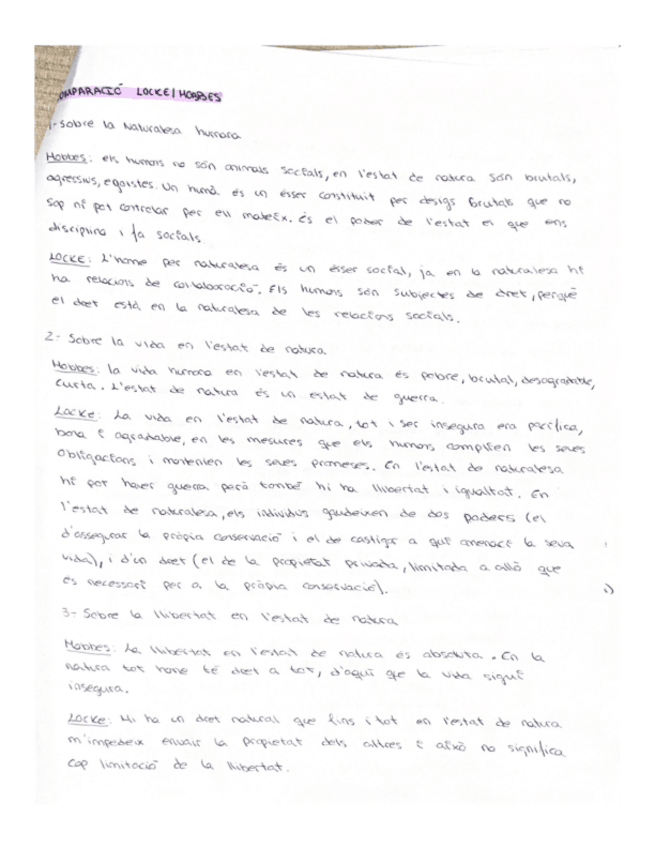 OMPARACIÓ LOCKE/HOBBES
1-Sobre la Naturalesa humana
Hobbes: els humans no són animals socials, en l'estat de natura són brutals,
agressius, egoistes. Un humà és un ésser constituit per desigs brutals que no
sap ni pot controlar per ell mateix. és el poder de l'estat el que ens
disciplina i fa socials
LOCKE: L'home per naturalesa és un ésser social, ja en la naturalesa hi
ha relacions de col·laboració. Els humans són subjectes de dret, perquè
el dret està en la naturalesa de les relacions socials.
2- Sobre la vida en l'estat de natura
Hobbes: la vida humana en l'estat de natura és pobre, brutal, desagradable,
curta. L'estat de natura és un estat de guerra.
Locke: La vida en l'estat de natura, tot i ser insegura era pacífica,
bona i agradable, en les mesures que els humans complien les seves
obligacions i mantenien les seves promeses. En l'estat de naturalesa
hi pot haver guerra però també hi ha llibertat i igualtat. En
l'estat de naturalesa, els individus gaudeixen de dos poders (el
d'assegurar la pròpia conservació i el de castigar a qui amenaci la seva
vida), i d'un dret (el de la propietat privada, limitada a allò que
és necessari per a la pròpia conservació).
3- Sobre la llibertat en l'estat de natura
Hobbes: La llibertat en l'estat de natura és absoluta. En la
natura tot home té dret a tot, d'aquí que la vida sigui
insegura.
Locke: Hi ha un dret natural que fins i tot en l'estat de natura
m'impedeix envair la propietat dels altres i això no significa
cap limitació de la llibertat.